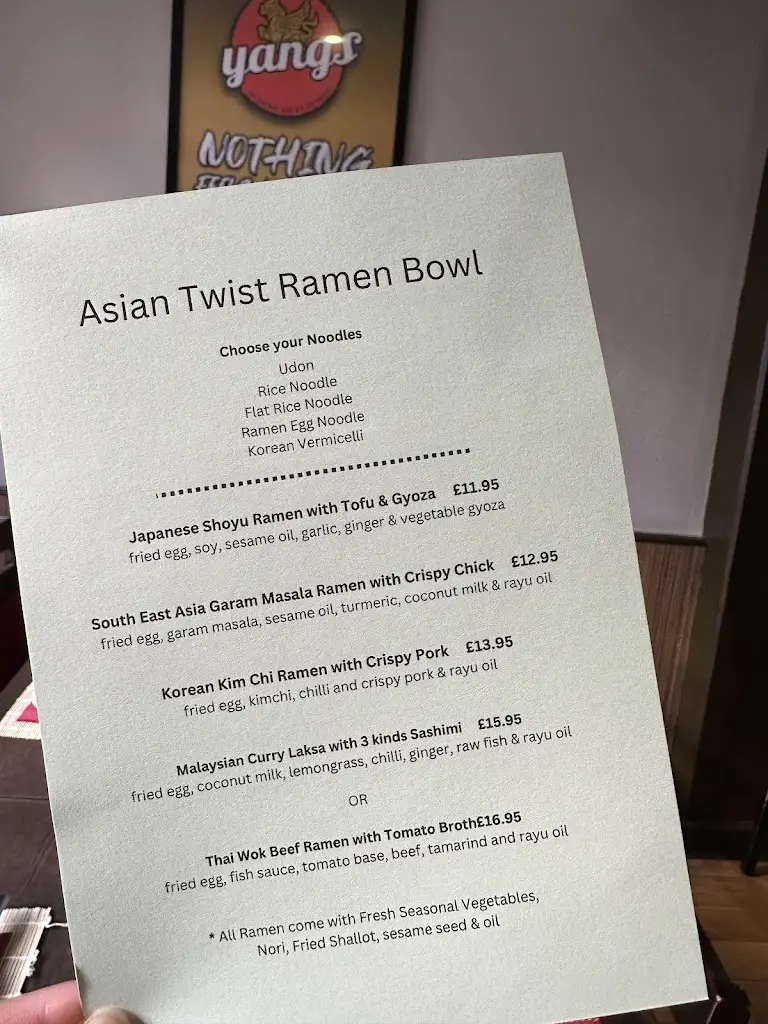 yangs
NOTHING
Asian Twist Ramen Bowl
Choose your Noodles
Udon
Rice Noodle
Flat Rice Noodle
Ramen Egg Noodle
Korean Vermicelli
Japanese Shoyu Ramen with Tofu & Gyoza £11.95
fried egg, soy, sesame oil, garlic, ginger & vegetable gyoza
South East Asia Garam Masala Ramen with Crispy Chick £12.95
fried egg, garam masala, sesame oil, turmeric, coconut milk & rayu oil
Korean Kim Chi Ramen with Crispy Pork £13.95
fried egg, kimchi, chilli and crispy pork & rayu oil
Malaysian Curry Laksa with 3 kinds Sashimi £15.95
fried egg, coconut milk, lemongrass, chilli, ginger, raw fish & rayu oil
OR
Thai Wok Beef Ramen with Tomato Broth£16.95
fried egg, fish sauce, tomato base, beef, tamarind and rayu oil
* All Ramen come with Fresh Seasonal Vegetables,
Nori, Fried Shallot, sesame seed & oil